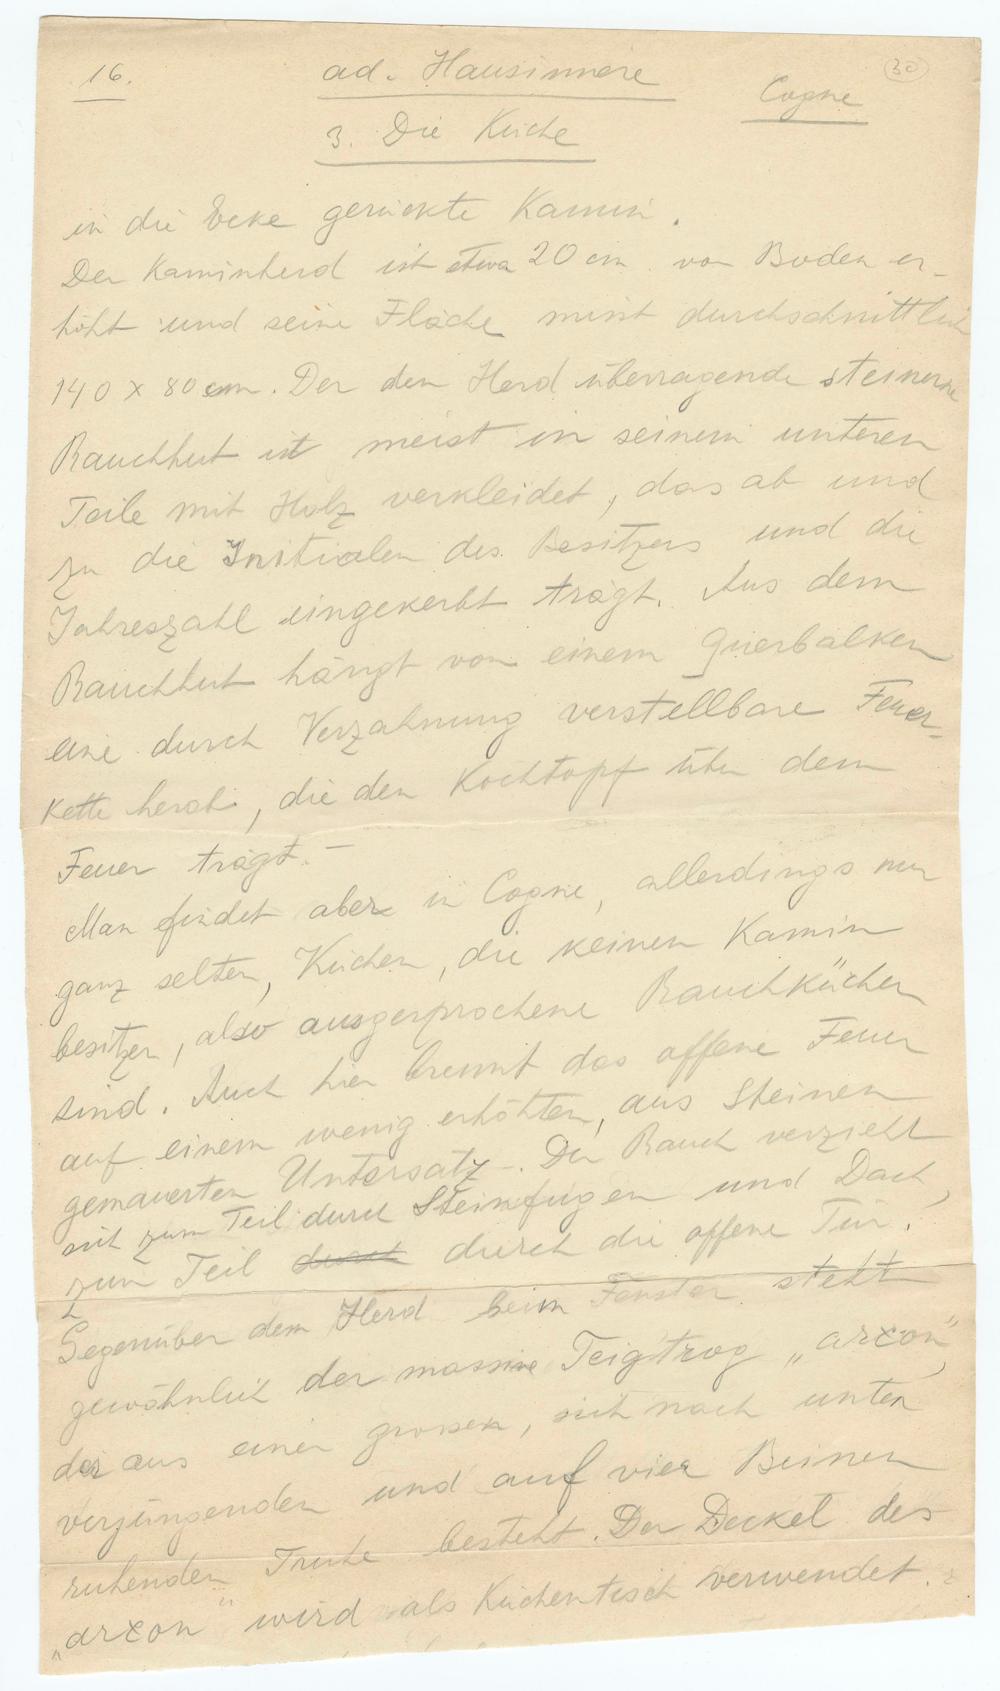 16. ad. Hausinnere 30
Cogne
3. Die Küche
in die Ecke gerückte Kamin.
Der Kaminherd ist etwa 20 cm von Boden er-
höht und seine Fläche misst durchschnittlich
140 x 80 cm. Der den Herd überragende steinerne
Rauchhut ist meist in seinem unteren
Teile mit Holz verkleidet, das ab und
zu die Initialen des Besitzers und die
Jahreszahl eingekerbt trägt. Aus dem
Rauchhut hängt von einem Querbalken
eine durch Verzahnung verstellbare Feuer-
kette herab, die den Kochtopf über dem
Feuer trägt. –
Man findet aber in Cogne, allerdings nur
ganz selten, Küchen, die keinen Kamin
besitzen, also ausgesprochene Rauchküchen
sind. Auch hier brennt das offene Feuer
auf einem wenig erhöhten, aus Steinen
gemauerten Untersatz. Der Rauch verzieht
sich zum Teil durch Steinfugen und Dach,
zum Teil durch durch die offene Tür.
Gegenüber dem Herd beim Fenster steht
gewöhnlich der massive Teigtrog „arcon",
der aus einer grossen, sich nach unten
verjüngenden und auf vier Beinen
ruhenden Truhe besteht. Der Deckel des
„arcon" wird als Küchentisch verwendet.